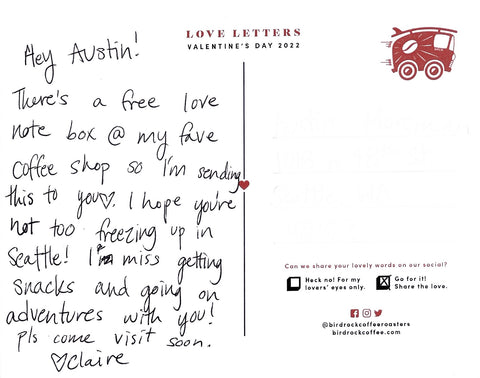 Hey Austin!
There's a free love
note box @ my fave
coffee shop so I'm sending
this to you♡. I hope you're
not too freezing up in
Seattle! I miss getting
snacks and going on
adventures with you!
pls come visit soon.
♡Claire
LOVE LETTERS
VALENTINE'S DAY 2022
Can we share your lovely words on our social?
Heck no! For my
lovers' eyes only.
Go for it!
Share the love.
@birdrockcoffeeroasters
birdrockcoffee.com